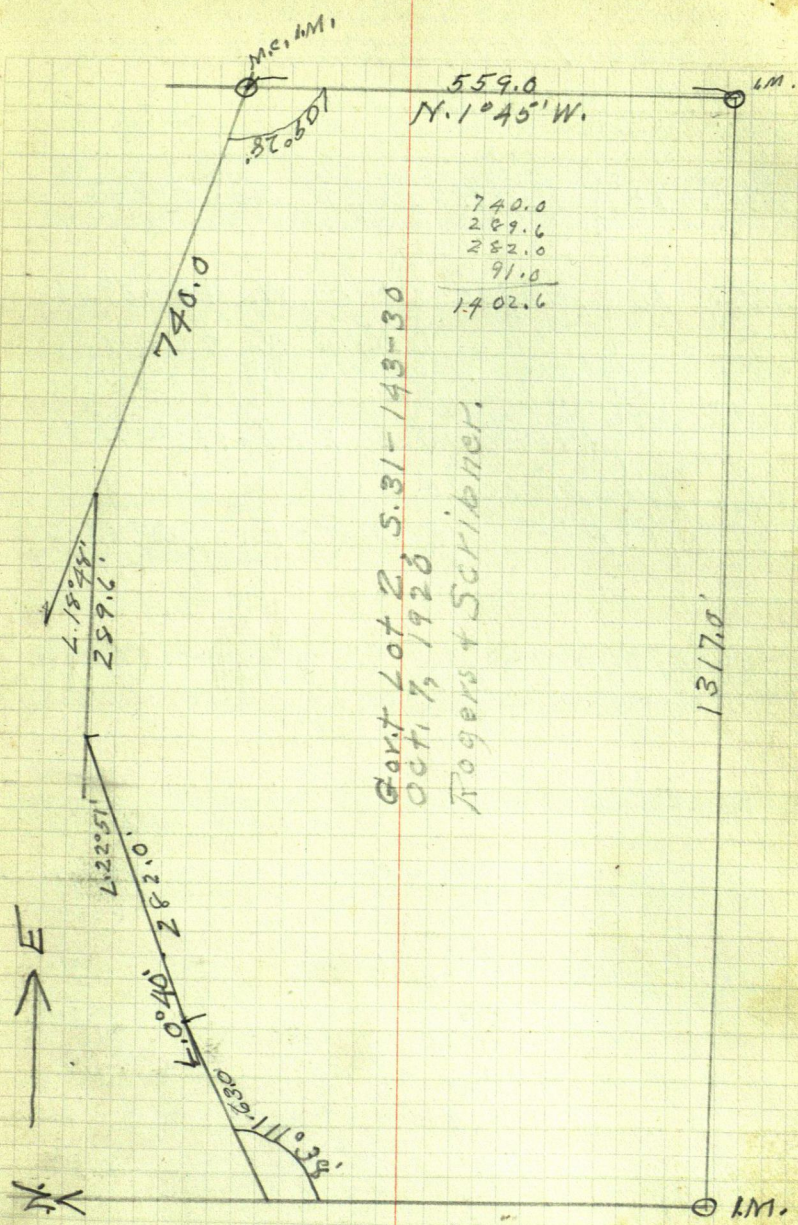 M.C. I.M.
559.0
I.M.
N. 1°45' W.
109°28'
740.0
289.6
282.0
91.0
1402.6
740.0
Gov't Lot 2 S.31-143-30
Oct. 7, 1920
Rogers & Scribner.
L.18°48'
289.6'
1317.0'
L.22°51'
282.0'
E
L.0°40'
111°38'
N.
I.M.